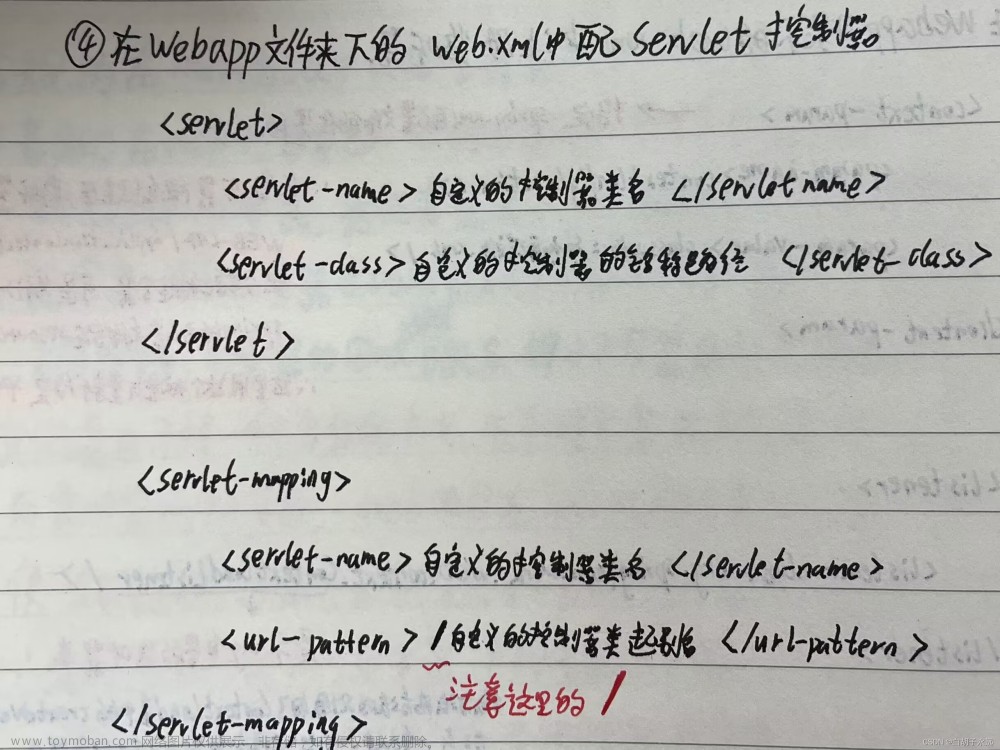 ④在Webapp文件夹下的 web.xml中配 Servlet 控制器
<servlet>
<servlet-name>自定义的控制器类名 </servlet name>
<servlet-class>自定义的控制器的全称路径 </servlet-class>
</servlet>
<servlet-mapping>
<servlet-name>自定义的控制器类名 </servlet-name>
<url-pattern> /自定义的控制器类起别名 </url-pattern>
注意这里的 /
</servlet-mapping>
www.toymoban.com 网络图片仅供展示，非存储，如有侵权请联系删除。